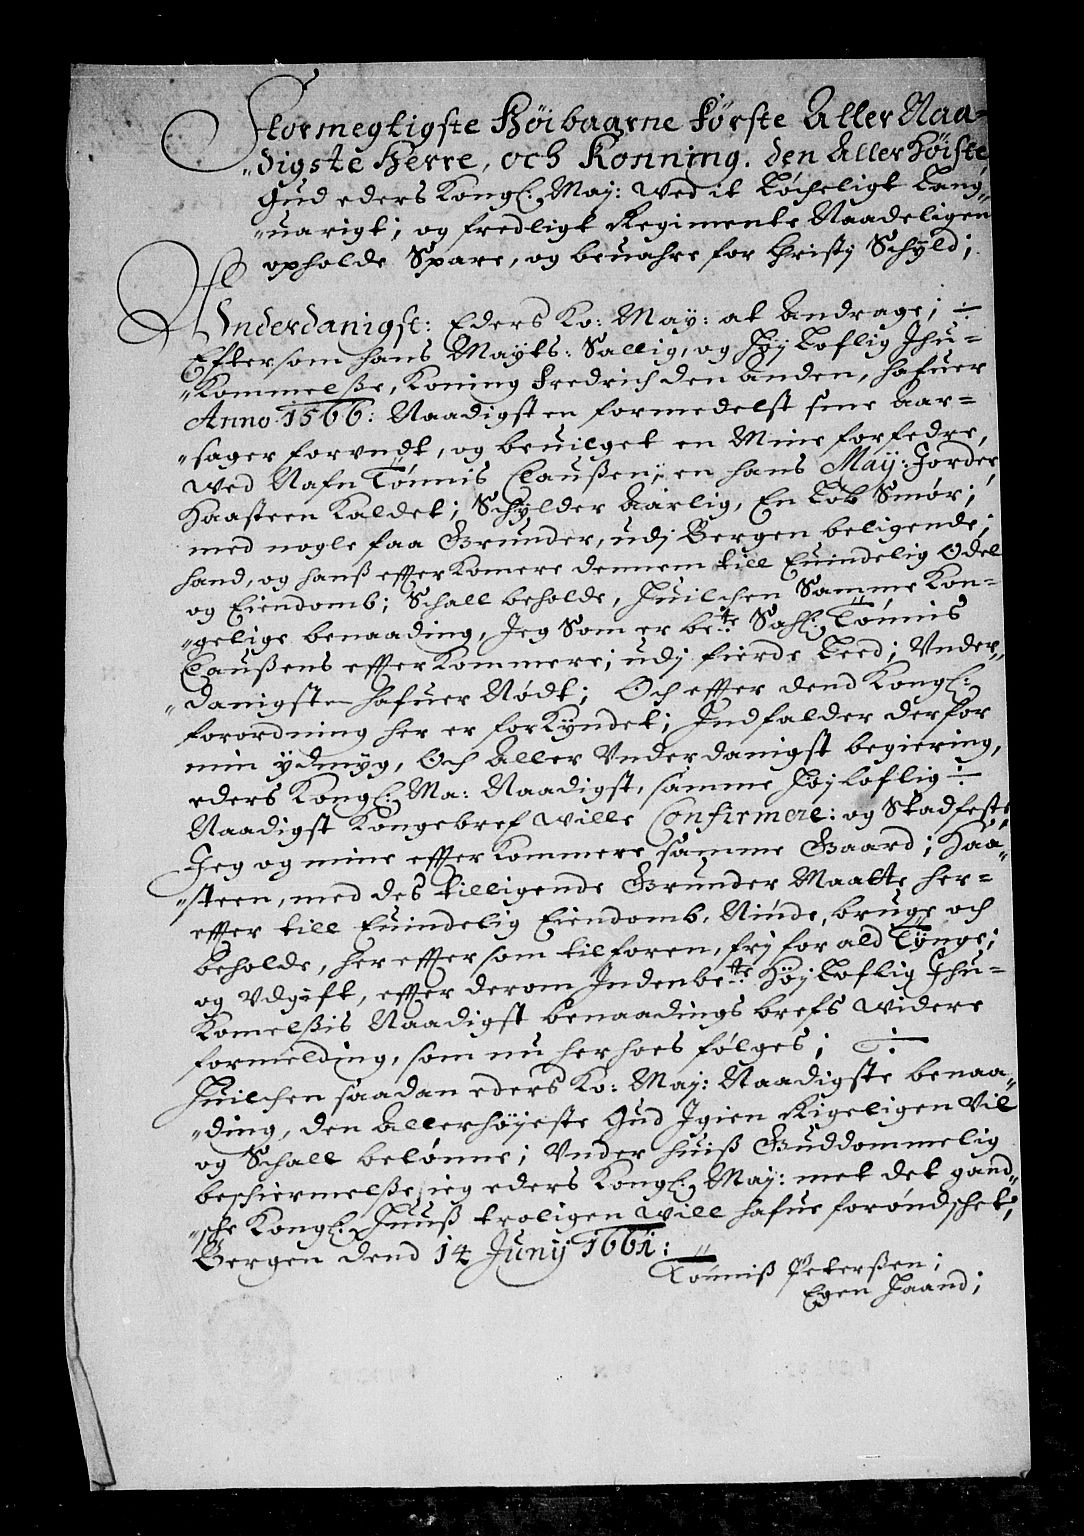 Stormegtigste Høibaarne Førske Aller Naa-
"digste Herre, och Konning. den Aller Høiste
Gud eders Kongl: May: wed it Løcheligt Lang"
"uarigt; og fredligt Regimente Naadeligen
opholde Spare, og beuahre for Christj Schyld;
Vnderdanigst: Eders Ko: May: at Andrage; ÷
Eftersom hans Mayts: Sallig, og Høj Loflig Jhu-
"Kommelsße, Koning Fredrich den anden, hafuer
Anno 1566: Naadigsten formedelst sine Aar-
"sager forvndt, og beuilget en Mine forfedre,
wed Nafn Tønnis Claußen; en hans May: Jorder,
Haasteen Kaldet; Schylder Aarlig, En Løb Smør;
med nogle faa Grunder, udj Bergen beligende;
hand, og hanß effterkomere dennem till Euindelig Odel
og Eiendomb; Schall beholde, Huilchen Samme Kon-
"gelige benaading, Jeg Som er bete: Sahl: Tønnis
Claußens effterkommere; udj fierde Leed; Vnder"
"danigsten hafuer Nødt; Och effter dend Kongl:
forordning her er forkyndet; Indfalder derfor
min ydmyg, Och Aller Vnderdanigst begiering,
eders Kongl: Ma: Naadigst, samme Høj loflig ÷
Naadigst Kongebref wille Confirmere: og Stadfeste,
Jeg og mine effterkommere samme Gaard; Haa"
"steen, med des tilligende Grunder Maatte her-
effter till Euindelig Eiendomb, Niude, bruge och
beholde, her effter som tilforen, frj for ald Tynge;
og Vdgift, effter derom Indenbete: Høj Loflig Jhu-
Komelßis Naadigst benaadings brefs widere
formelding, som nu her hoes følges; ÷
Huilchen saadan eders Ko: Maj: Naadigste benaa"
"ding, den Allerhøjeste Gud Igien Rigeligen Vil
og Schall belønne; Vnder huiß Guddommelig
beschiermelße, ieg eders Kongl: May: met det gand"
"sche Kongl: Huuß troligen will hafue forøndschet;
Bergen dend 14 Junij 1661:
Tønniß Peterßen;
Egen Haand;